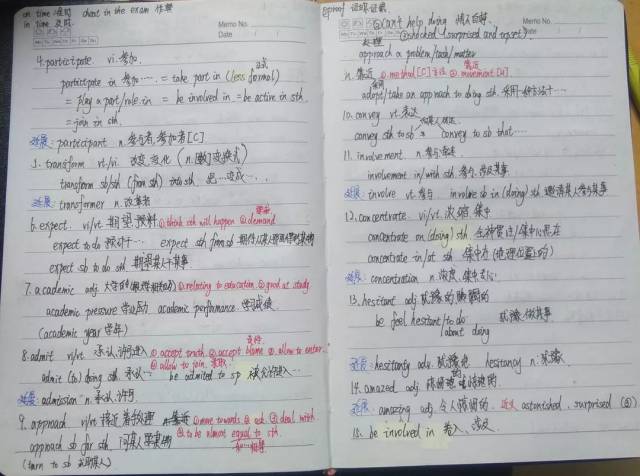 on time 准时 cheat in the exam 作弊
in time 及时
Memo No.
Date
4. participate vi. 参加
participate in 参加… = take part in (less formal) 正式
= play a part/role in = be involved in = be active in sth.
= join in sth.
拓展: participant n. 参与者, 参加者 [C]
5. transform vt/vi. 改变, 变化
transform sb/sth (from sth) into sth 把…变成…
拓展: transformer n.
6. expect vi/vt 期望, 预料 ①think sth will happen ②demand
expect to do 预计干… expect sth from sb
expect sb to do sth 期望某人干某事
7. academic adj. ①relating to education ②good at study
academic pressure 学业压力 academic performance 学习成绩
(academic year 学年)
8. admit vi/vt. 承认, 许可进入 ①accept truth ②accept blame ③allow to enter
④allow to join
admit (to) doing sth 承认… be admitted to sp 被允许进入…
拓展: admission n. 承认, 许可
9. approach vi/vt 接近, 着手处理 n. 靠近 ①move towards ②ask ③deal with
④to be almost equal to sth.
approach sb for sth
(turn to sb 求助某人)
eproof 证据
Memo No.
Date
can't help doing
①shocked (surprised and upset)
处理
approach a problem/task/matter
n. 靠近 ①method [C] 方法 ②movement [U] 靠近
采用
adopt/take an approach to doing sth 采用一种方法干…
10. convey vt. 表达
convey sth to sb = convey to sb that…
11. involvement n. 参与
involvement in/with sth
拓展: involve vt. 参与 involve sb in (doing) sth
12. concentrate vi/vt. 浓缩 集中
concentrate on (doing) sth 全神贯注/集中心思在
concentrate in/at sth 集中在 (地理位置上的)
拓展: concentration n. 浓度, 集中
13. hesitant adj. 犹豫的
be feel hesitant/to do 犹豫做某事
about doing
拓展: hesitantly adv. 犹豫地 hesitancy n. 犹豫
14. amazed adj.
拓展: amazing adj. 令人惊讶的, 近义 astonished, surprised (的)
15. be involved in 卷入, 涉及